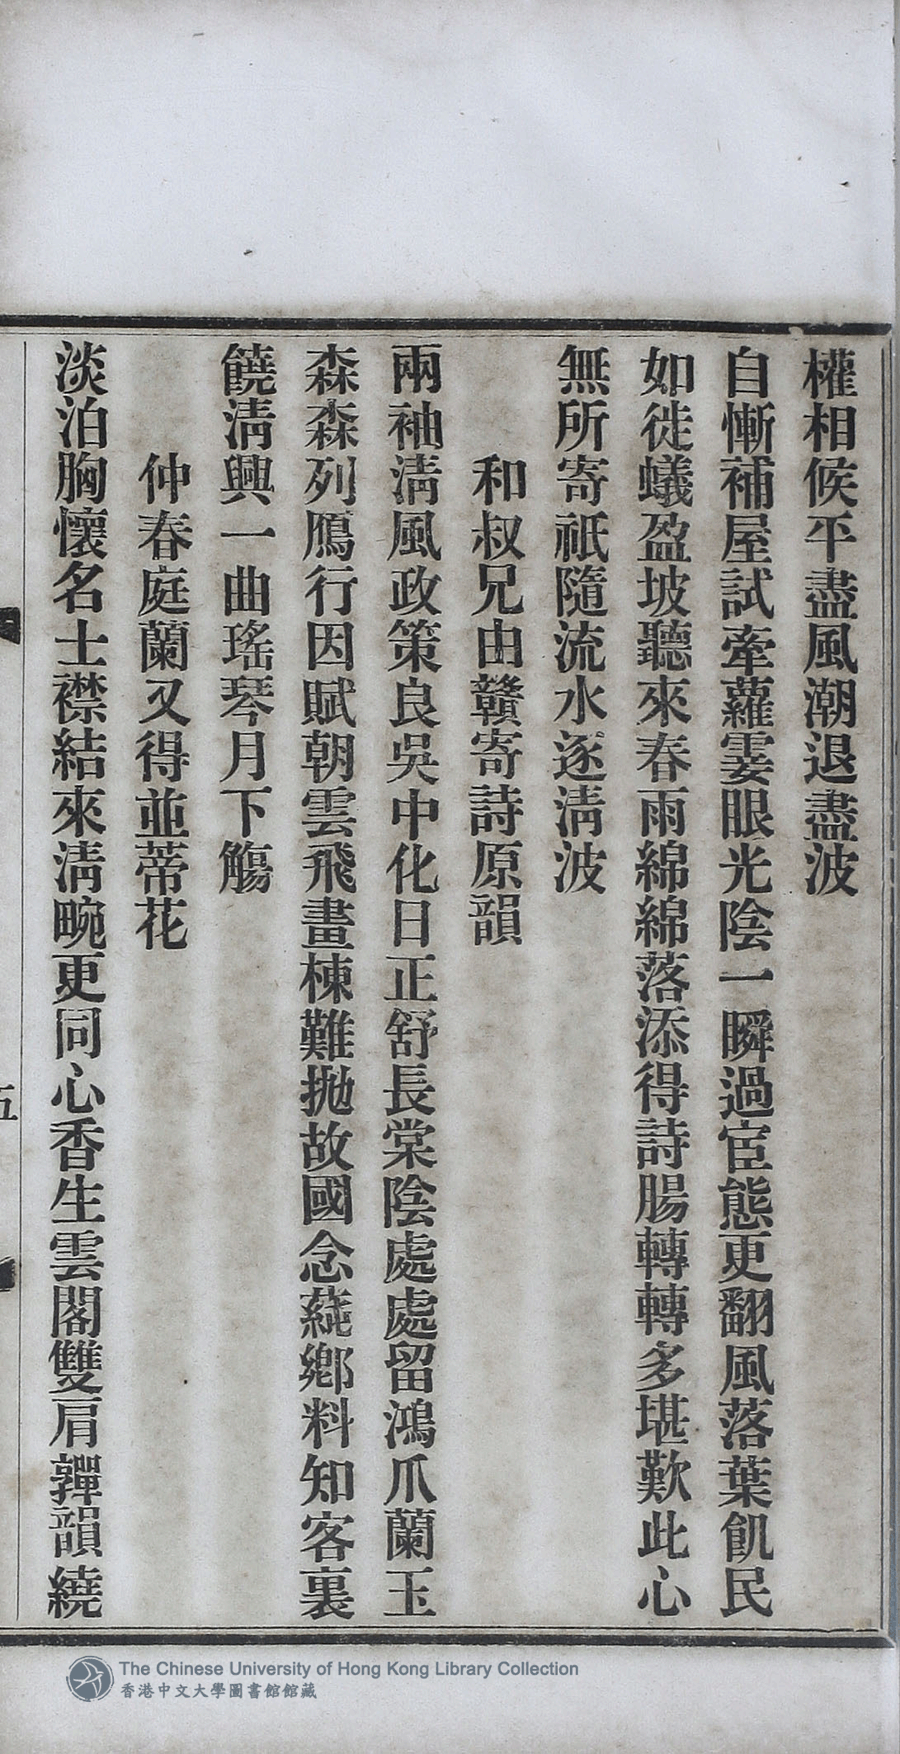 權相候平盡風潮退盡波
自慚補屋試牽蘿霎眼光陰一瞬過宦態更翻風落葉飢民
如徙蟻盈坡聽來春雨綿綿落添得詩腸轉轉多堪歎此心
無所寄祇隨流水逐淸波
和叔兄由贛寄詩原韻
兩袖淸風政策良吳中化日正舒長棠陰處處留鴻爪蘭玉
森森列鴈行因賦朝雲飛畫棟難拋故國念蒓鄕料知客裏
饒淸興一曲瑤琴月下觴
仲春庭蘭又得並蒂花
淡泊胸懷名士襟結來淸畹更同心香生雲閣雙肩嚲韻繞
五
The Chinese University of Hong Kong Library Collection
香港中文大學圖書館館藏